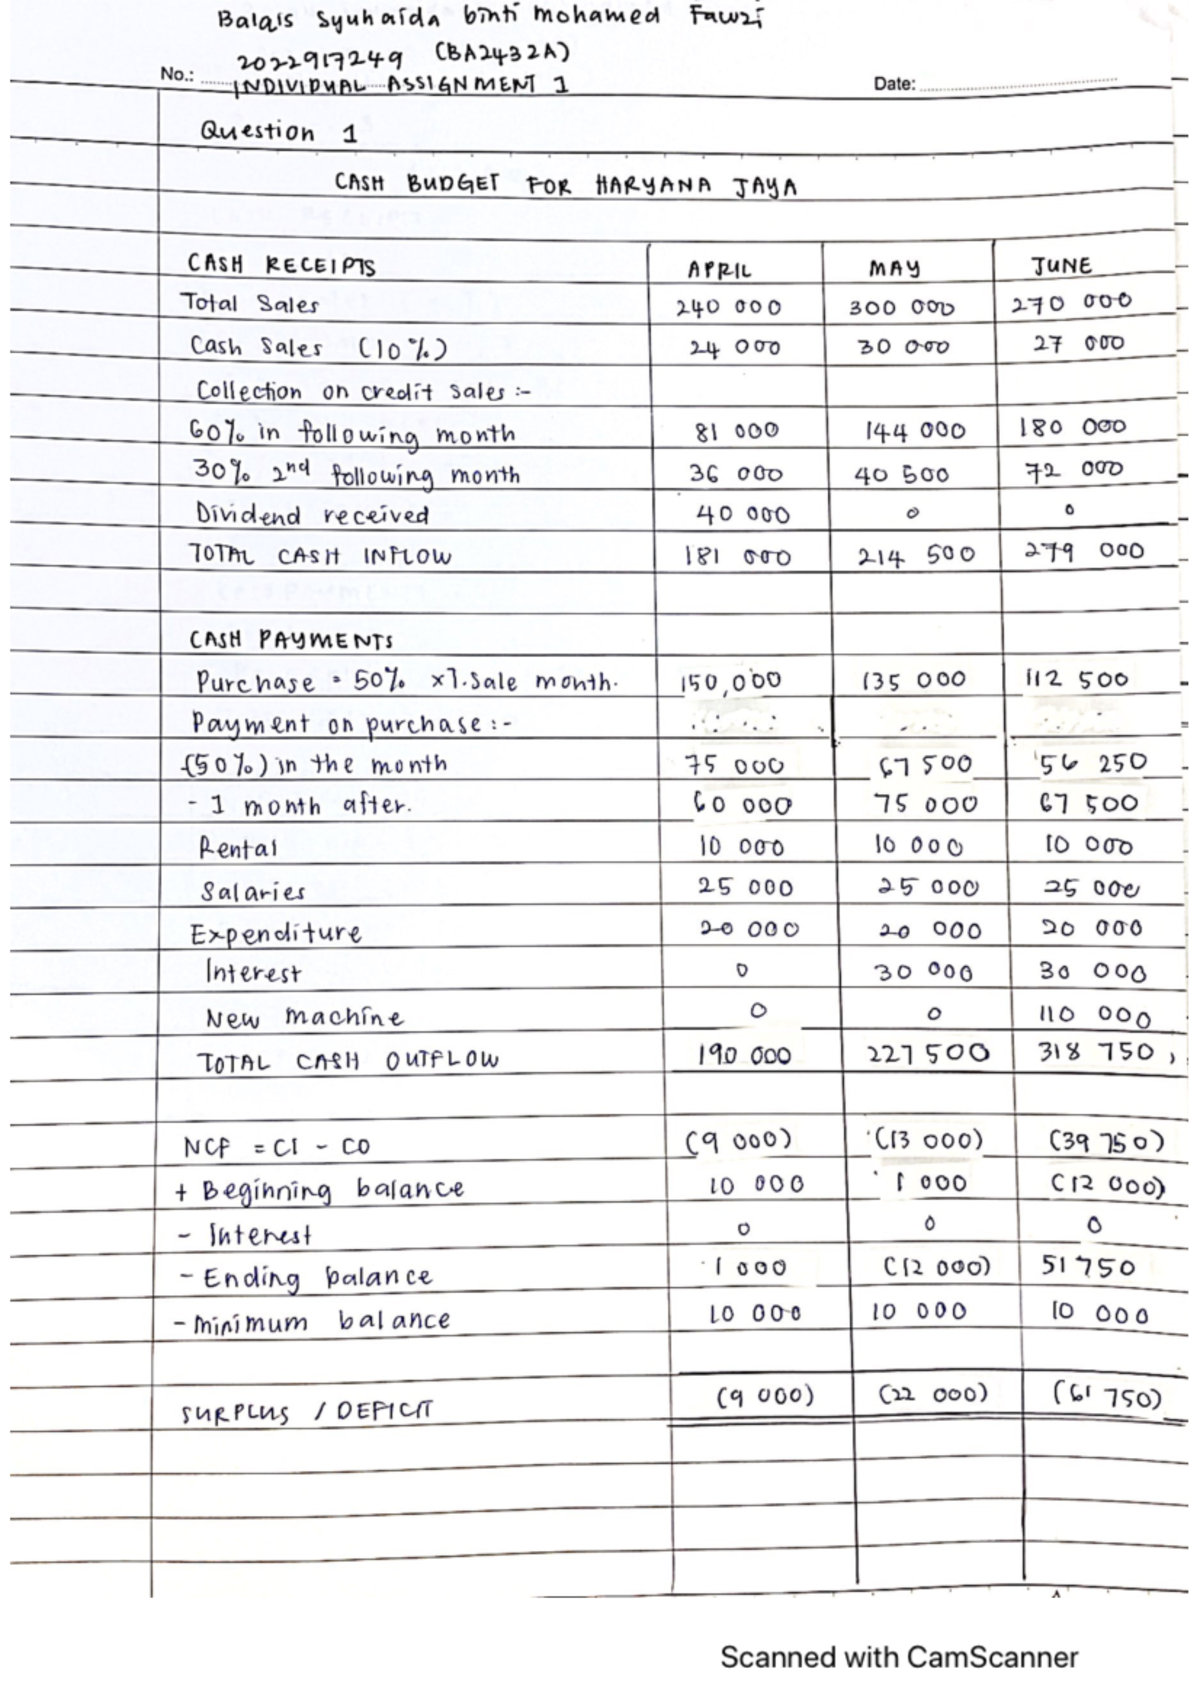 Balqis Syuhaida binti Mohamed Fawzi
2022917249 (BA2432A)
No.: INDIVIDUAL ASSIGNMENT 1 Date:
Question 1
CASH BUDGET FOR HARYANA JAYA
CASH RECEIPTS APRIL MAY JUNE
Total Sales 240 000 300 000 270 000
Cash Sales (10%) 24 000 30 000 27 000
Collection on credit sales :-
60% in following month 81 000 144 000 180 000
30% 2nd following month 36 000 40 500 72 000
Dividend received 40 000 0 0
TOTAL CASH INFLOW 181 000 214 500 279 000
CASH PAYMENTS
Purchase = 50% x T.Sale month. 150,000 135 000 112 500
Payment on purchase :-
(50%) in the month 75 000 67 500 56 250
- 1 month after. 60 000 75 000 67 500
Rental 10 000 10 000 10 000
Salaries 25 000 25 000 25 000
Expenditure 20 000 20 000 20 000
Interest 0 30 000 30 000
New machine 0 0 110 000
TOTAL CASH OUTFLOW 190 000 227 500 318 750,
NCF = CI - CO (9 000) (13 000) (39 750)
+ Beginning balance 10 000 1 000 (12 000)
- Interest 0 0 0
- Ending balance 1 000 (12 000) 51 750
- minimum balance 10 000 10 000 10 000
SURPLUS / DEFICIT (9 000) (22 000) (61 750)
Scanned with CamScanner